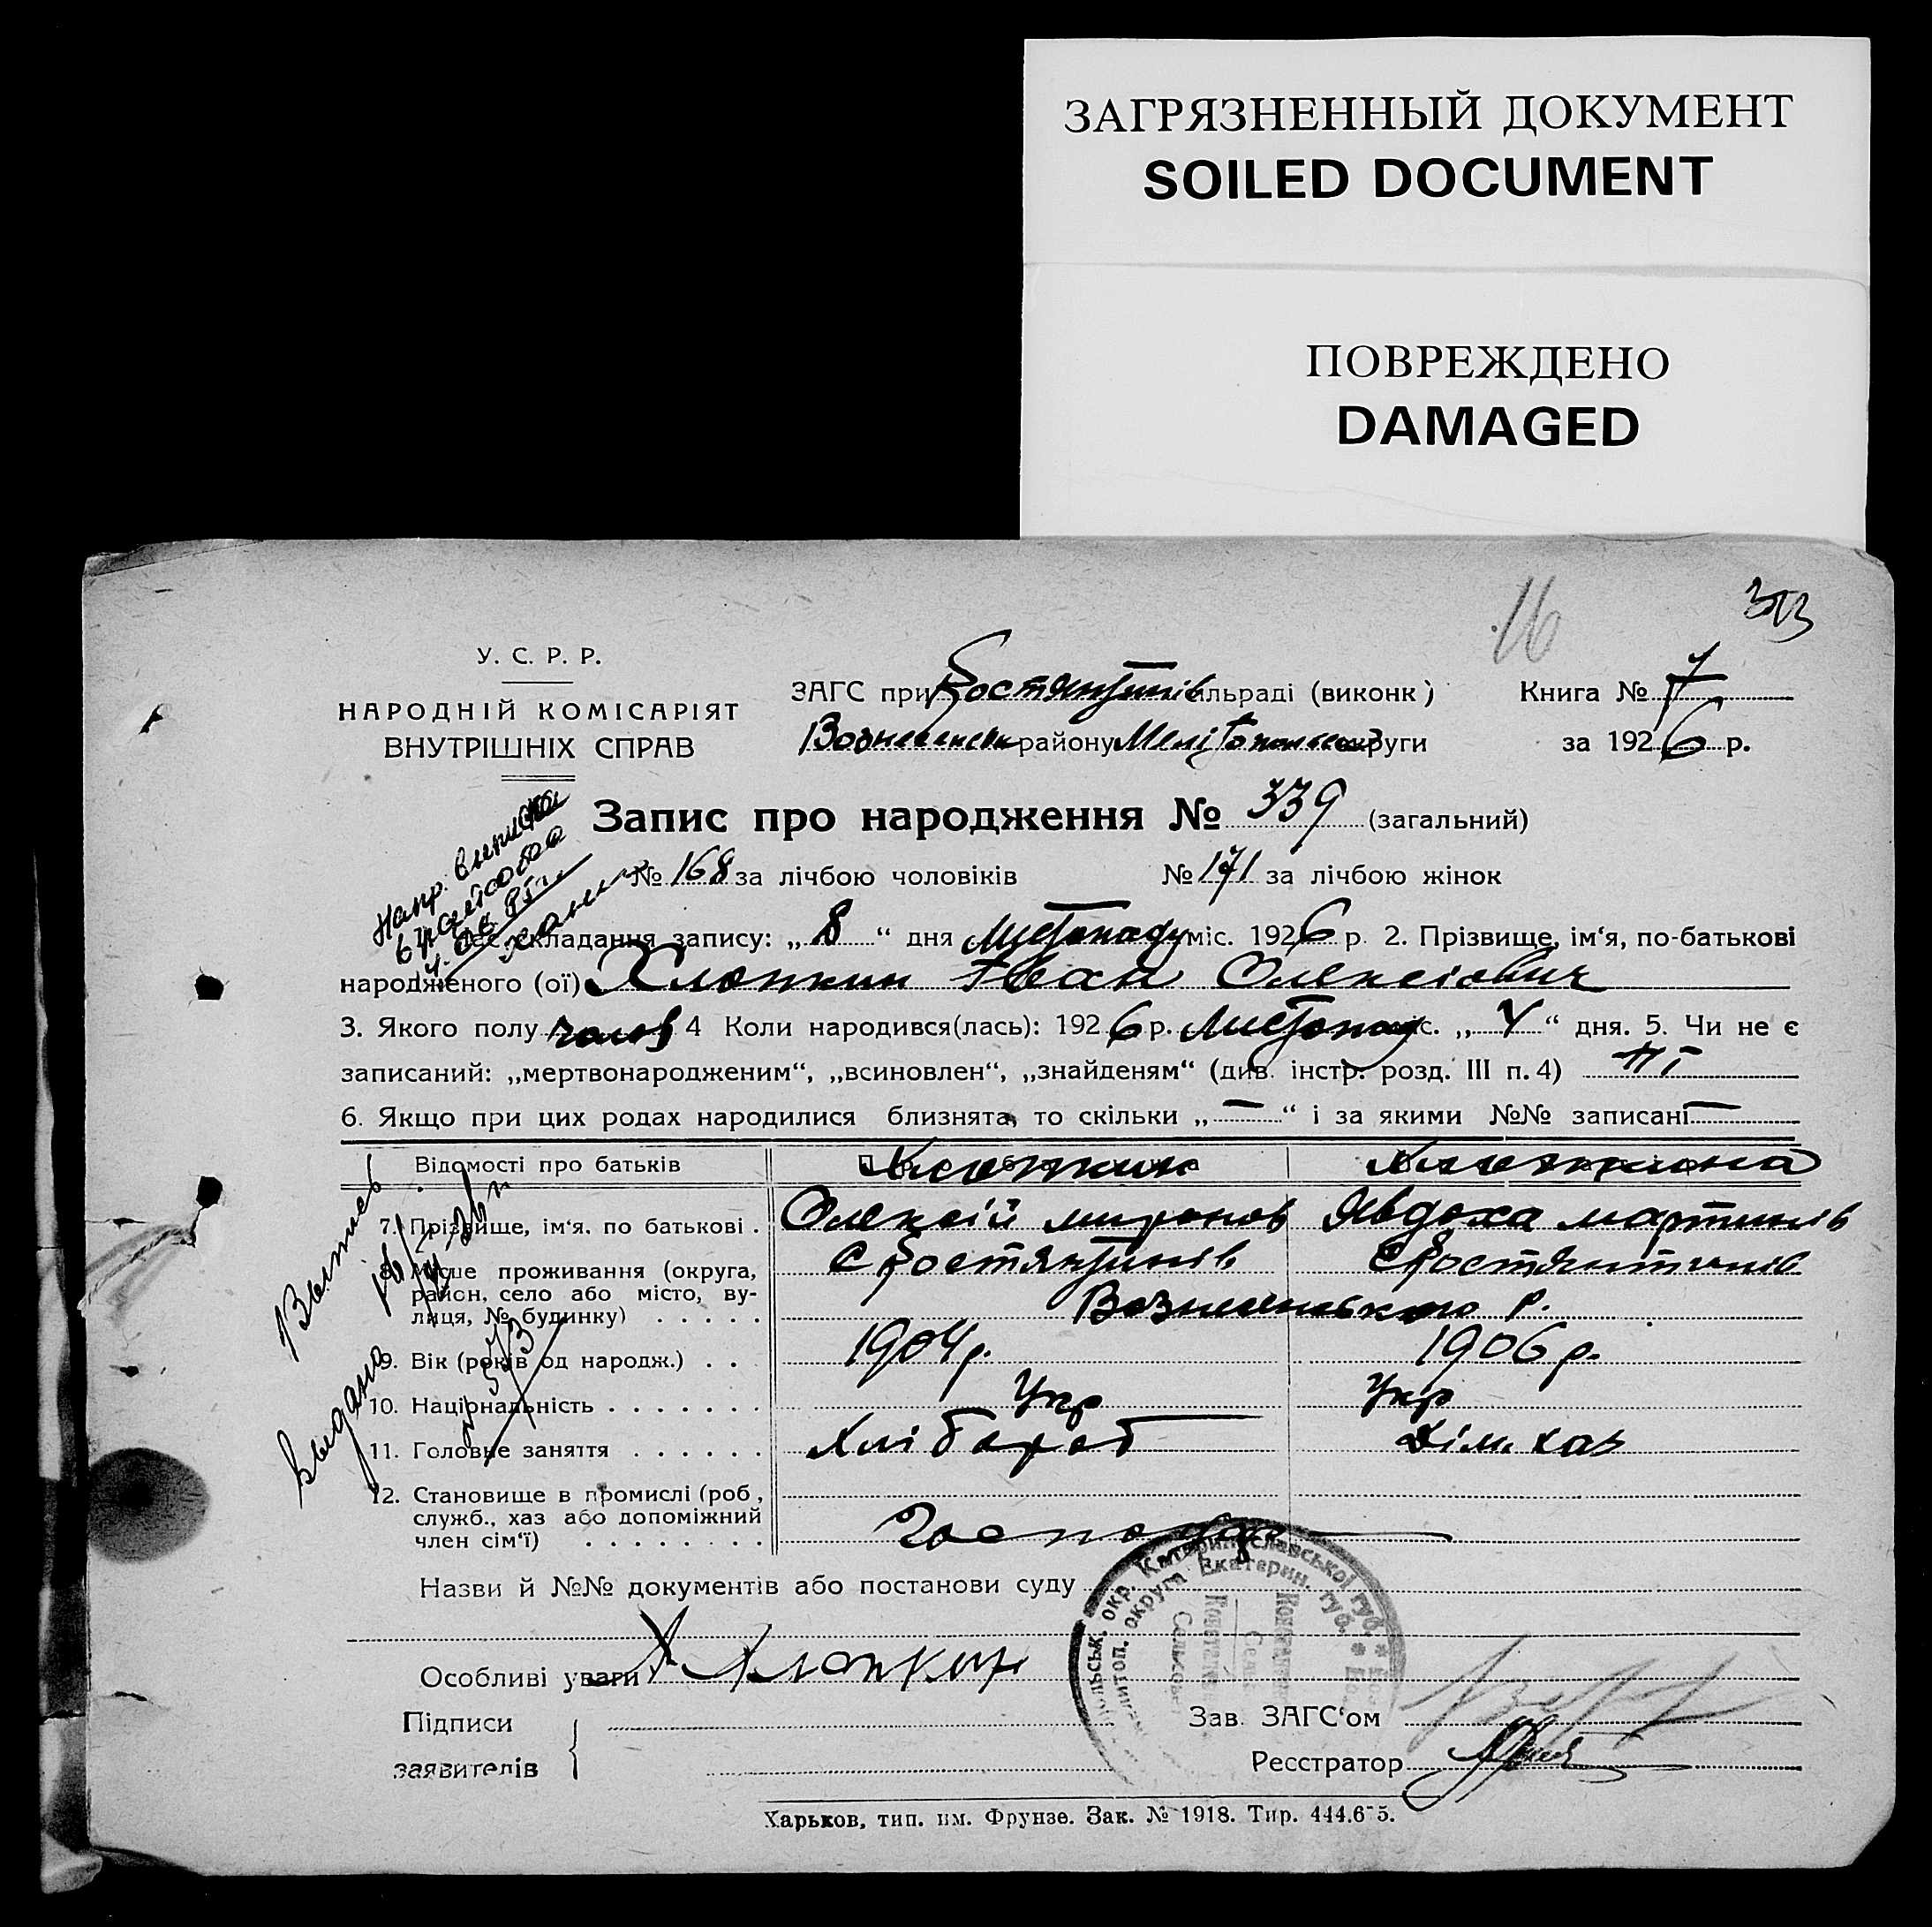 ЗАГРЯЗНЕННЫЙ ДОКУМЕНТ
SOILED DOCUMENT
ПОВРЕЖДЕНО
DAMAGED
16
У. С. Р. Р.
НАРОДНІЙ КОМІСАРІЯТ
ВНУТРІШНІХ СПРАВ
ЗАГС при Костянтинів ільраді (виконк)
Книга № 7
району Мелітопольськ округи
за 1926 р.
Запис про народження № 339 (загальний)
№ 168 за лічбою чоловіків № 171 за лічбою жінок
складання запису: „ 8 “ дня Листопаду міс. 1926 р. 2. Прізвище, ім‘я, по-батькові
народженого (ої) Хлопкин Іван Олексіович
3. Якого полу чолов 4 Коли народився(лась): 1926 р. Листопад міс. „ 4 “ дня. 5. Чи не є
записаний: „мертвонародженим“, „всиновлен“, „знайденям“ (див. інстр. розд. III п. 4) ні
6. Якщо при цих родах народилися близнята, то скільки „ — “ і за якими №№ записані —
Відомості про батьків Хлопкин Хлопкина
7. Прізвище, ім‘я, по батькові . Олексій миронов Явдоха мартинів
8. Місце проживання (округа, с Костянтинів с Костянтинів
район, село або місто, ву-
лиця, № будинку) . . . . . Вознесенського р.
9. Вік (років од народж.) . . . 1904 р. 1906 р.
10. Національність . . . . . . . Укр Укр
11. Головне заняття . . . . . . Хлібороб Дім. хаз
12. Становище в промислі (роб,
служб., хаз або допоміжний
член сім‘ї) . . . . . . . . Господар
Назви й №№ документів або постанови суду
Особливі уваги Хлопкин
Підписи
заявителів
Зав. ЗАГС‘ом
Реєстратор
Харьков, тип. им. Фрунзе. Зак. № 1918. Тир.